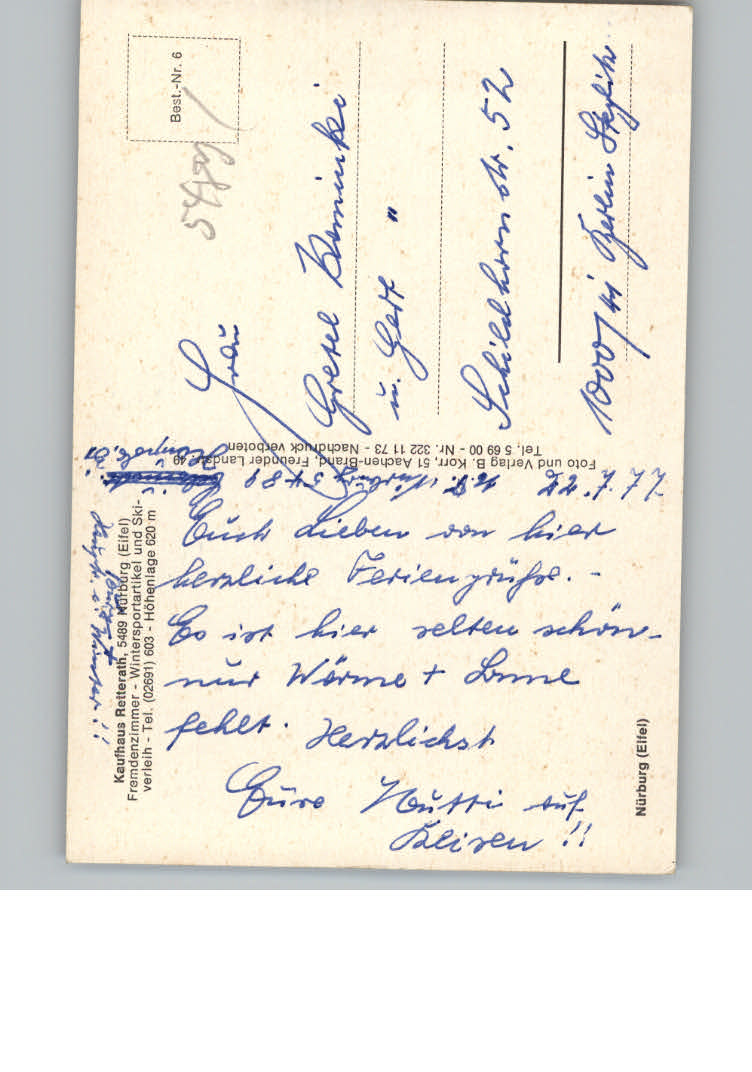 Best.-Nr. 6
Frau
Gretel Kaminski
u. Gert "
Schildhornstr. 52
1000/41 Berlin Steglitz
Foto und Verlag B. Korr, 51 Aachen-Brand, Freunder Landstr. 49
Tel. 5 69 00 - Nr. 322 11 73 - Nachdruck verboten
Nürburg 5489
22.7.77
Euch Lieben von hier
herzliche Feriengrüße. -
Es ist hier selten schön -
nur Wärme + Sonne
fehlt. Herzlichst
Eure Mutti auf
Reisen!!
Kaufhaus Retterath, 5489 Nürburg (Eifel)
Fremdenzimmer - Wintersportartikel und Ski-
verleih - Tel. (02691) 603 - Höhenlage 620 m
Nürburg (Eifel)